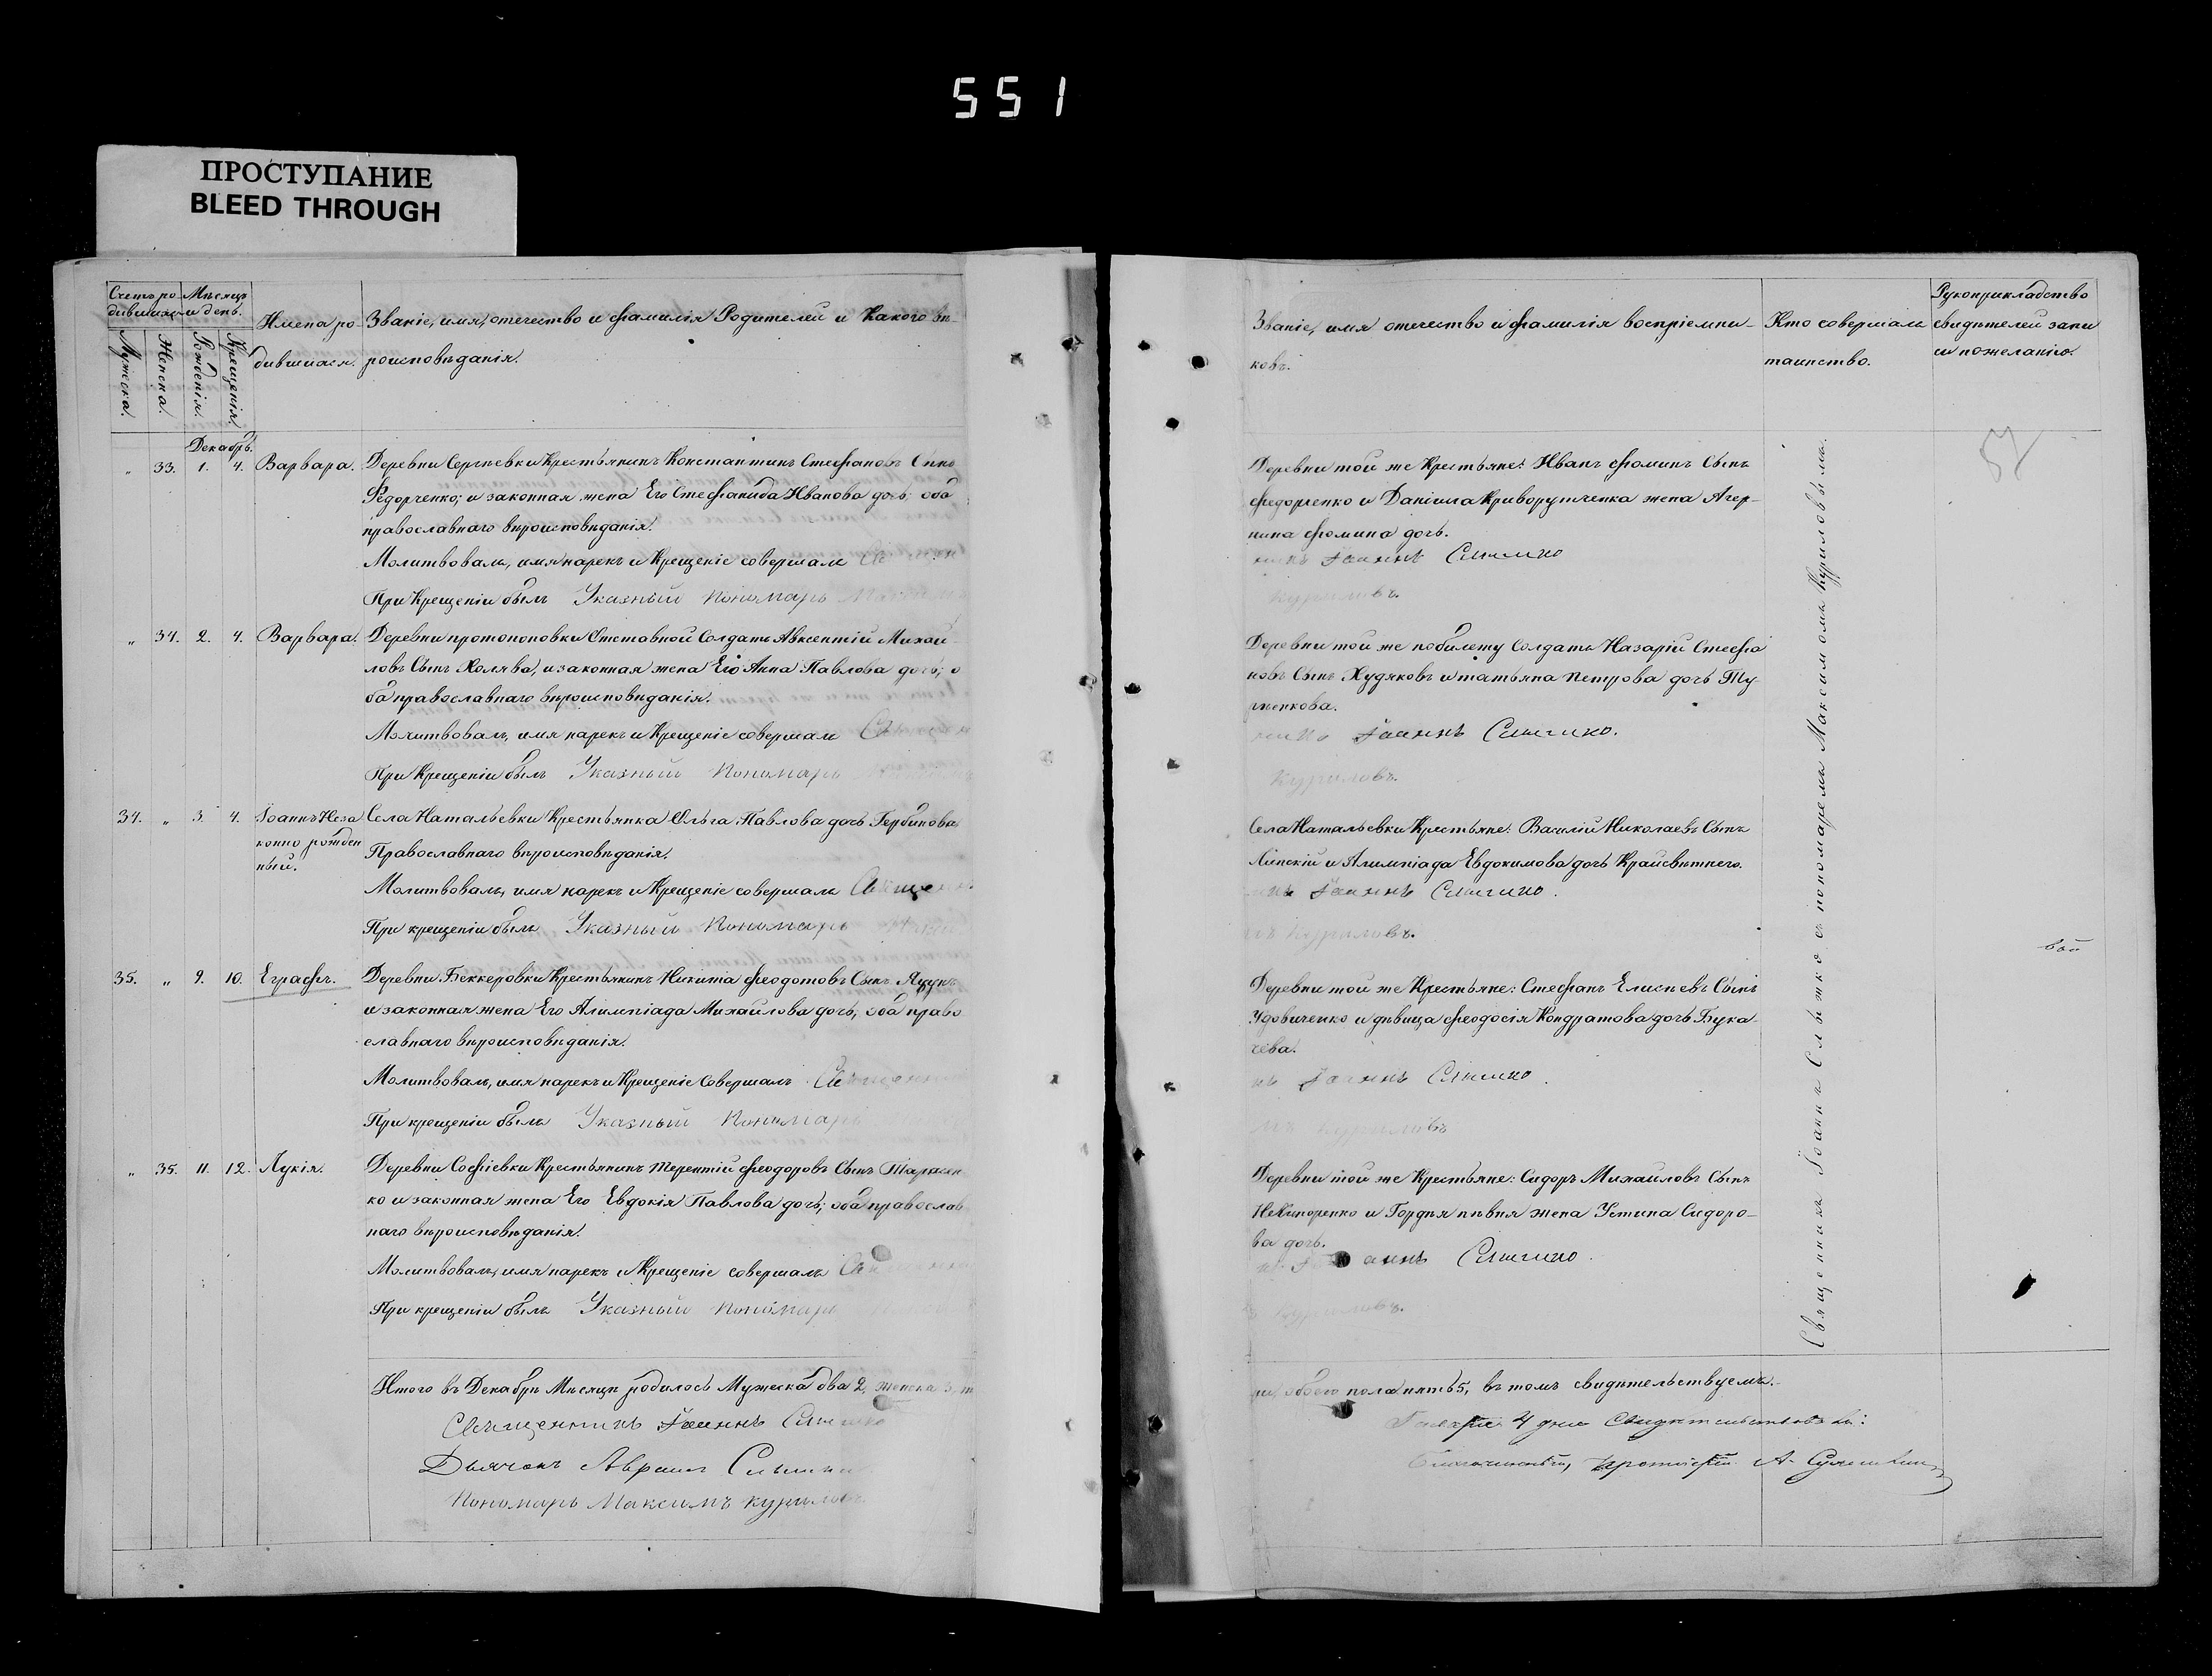 551
ПРОСТУПАНИЕ
BLEED THROUGH
Счетъ ро-
дившихся
Мѣсяцъ
и день.
Мужеска.
Женска.
Рожденія.
Крещенія.
Имена ро-
дившихся.
Званіе, имя, отечество и фамилія Родителей и Какого вѣ-
роисповѣданія.
Декабрь.
„ 33. 1. 4. Варвара.
Деревни Сергѣевки Крестьянинъ Константинъ Стефановъ Сынъ
Федорченко; и законная жена Его Стефанида Иванова дочь; оба
православнаго вѣроисповѣданія.
Молитвовалъ, имя нарекъ и Крещеніе совершалъ
При Крещеніи былъ Указный Пономарь
„ 34. 2. 4. Варвара.
Деревни протопоповки Отставной Солдатъ Авксентій Михай-
ловъ Сынъ Холява, и законная жена Его Анна Павлова дочь; о
ба православнаго вѣроисповѣданія.
Молитвовалъ, имя нарекъ и Крещеніе совершалъ
При Крещеніи былъ Указный Пономарь
34. „ 3. 4. Іоаннъ Неза
конно рожден
ный.
Села Натальевки Крестьянка Ольга Павлова дочь Гербинова
Православнаго вѣроисповѣданія.
Молитвовалъ, имя нарекъ и Крещеніе совершалъ Священн
При крещеніи былъ Указный Пономарь
35. „ 9. 10. Еграфъ.
Деревни Беккеровки Крестьянинъ Никита Феодотовъ Сынъ
и законная жена Его Алимпіада Михайлова дочь; оба право
славнаго вѣроисповѣданія.
Молитвовалъ, имя нарекъ и Крещеніе Совершалъ Священн
При крещеніи былъ Указный Пономарь
„ 35. 11. 12. Лукія.
Деревни Софіевки Крестьянинъ Терентій Феодоровъ Сынъ
ко и законная жена Его Евдокія Павлова дочь; оба православ
наго вѣроисповѣданія.
Молитвовалъ, имя нарекъ и Крещеніе совершалъ
При крещеніи былъ Указный Пономарь
Итого въ Декабрѣ Мѣсяцѣ родилось Мужеска два 2, женска 3,
Священникъ Іоаннъ
Дьячокъ Авраам
Пономарь Максимъ Куриловъ
Званіе, имя отечество и фамилія воспріемни-
ковъ.
Кто совершалъ
таинство.
Рукоприкладство
свидѣтелей запи
си по желанію.
57
Деревни той же Крестьяне: Иванъ Фоминъ Сынъ
Федорченко и Даніила Криворутченка жена Агер-
пина Фомина дочь.
никъ Іоаннъ Слышко
Куриловъ.
Деревни той же по билету Солдатъ Назарій Стефа
новъ Сынъ Худяковъ и татьяна Петрова дочь
Іоаннъ Слышко.
Куриловъ.
Села Натальевки Крестьяне: Василій Николаевъ Сынъ
Липскій и Алимпіада Евдокимова дочь
Іоаннъ Слышко.
Куриловъ.
Деревни той же Крестьяне: Стефанъ Елисѣевъ Сынъ
Удовиченко и дѣвица Феодосія Кондратова дочь Бука-
чева.
Іоаннъ Слышко.
Куриловъ
Деревни той же Крестьяне: Сидоръ Михайловъ Сынъ
Некипоренко и Гордѣя пѣвня жена Устина Сидоро-
ва дочь.
Слышко.
Куриловъ.
Священникъ Іоаннъ Слышко съ пономаремъ Максимомъ Куриловымъ.
ри, обоего пола пять 5, въ томъ свидѣтельствуемъ.
4 дня Свидѣтельствовалъ:
Благочинный, протоіерей А.